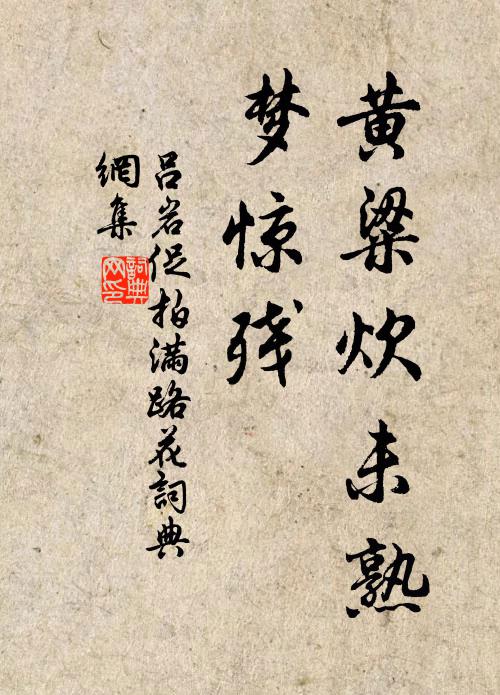 黄粱炊未熟
梦惊残
吕岩促拍满路花詞典
網集
詞典
网印